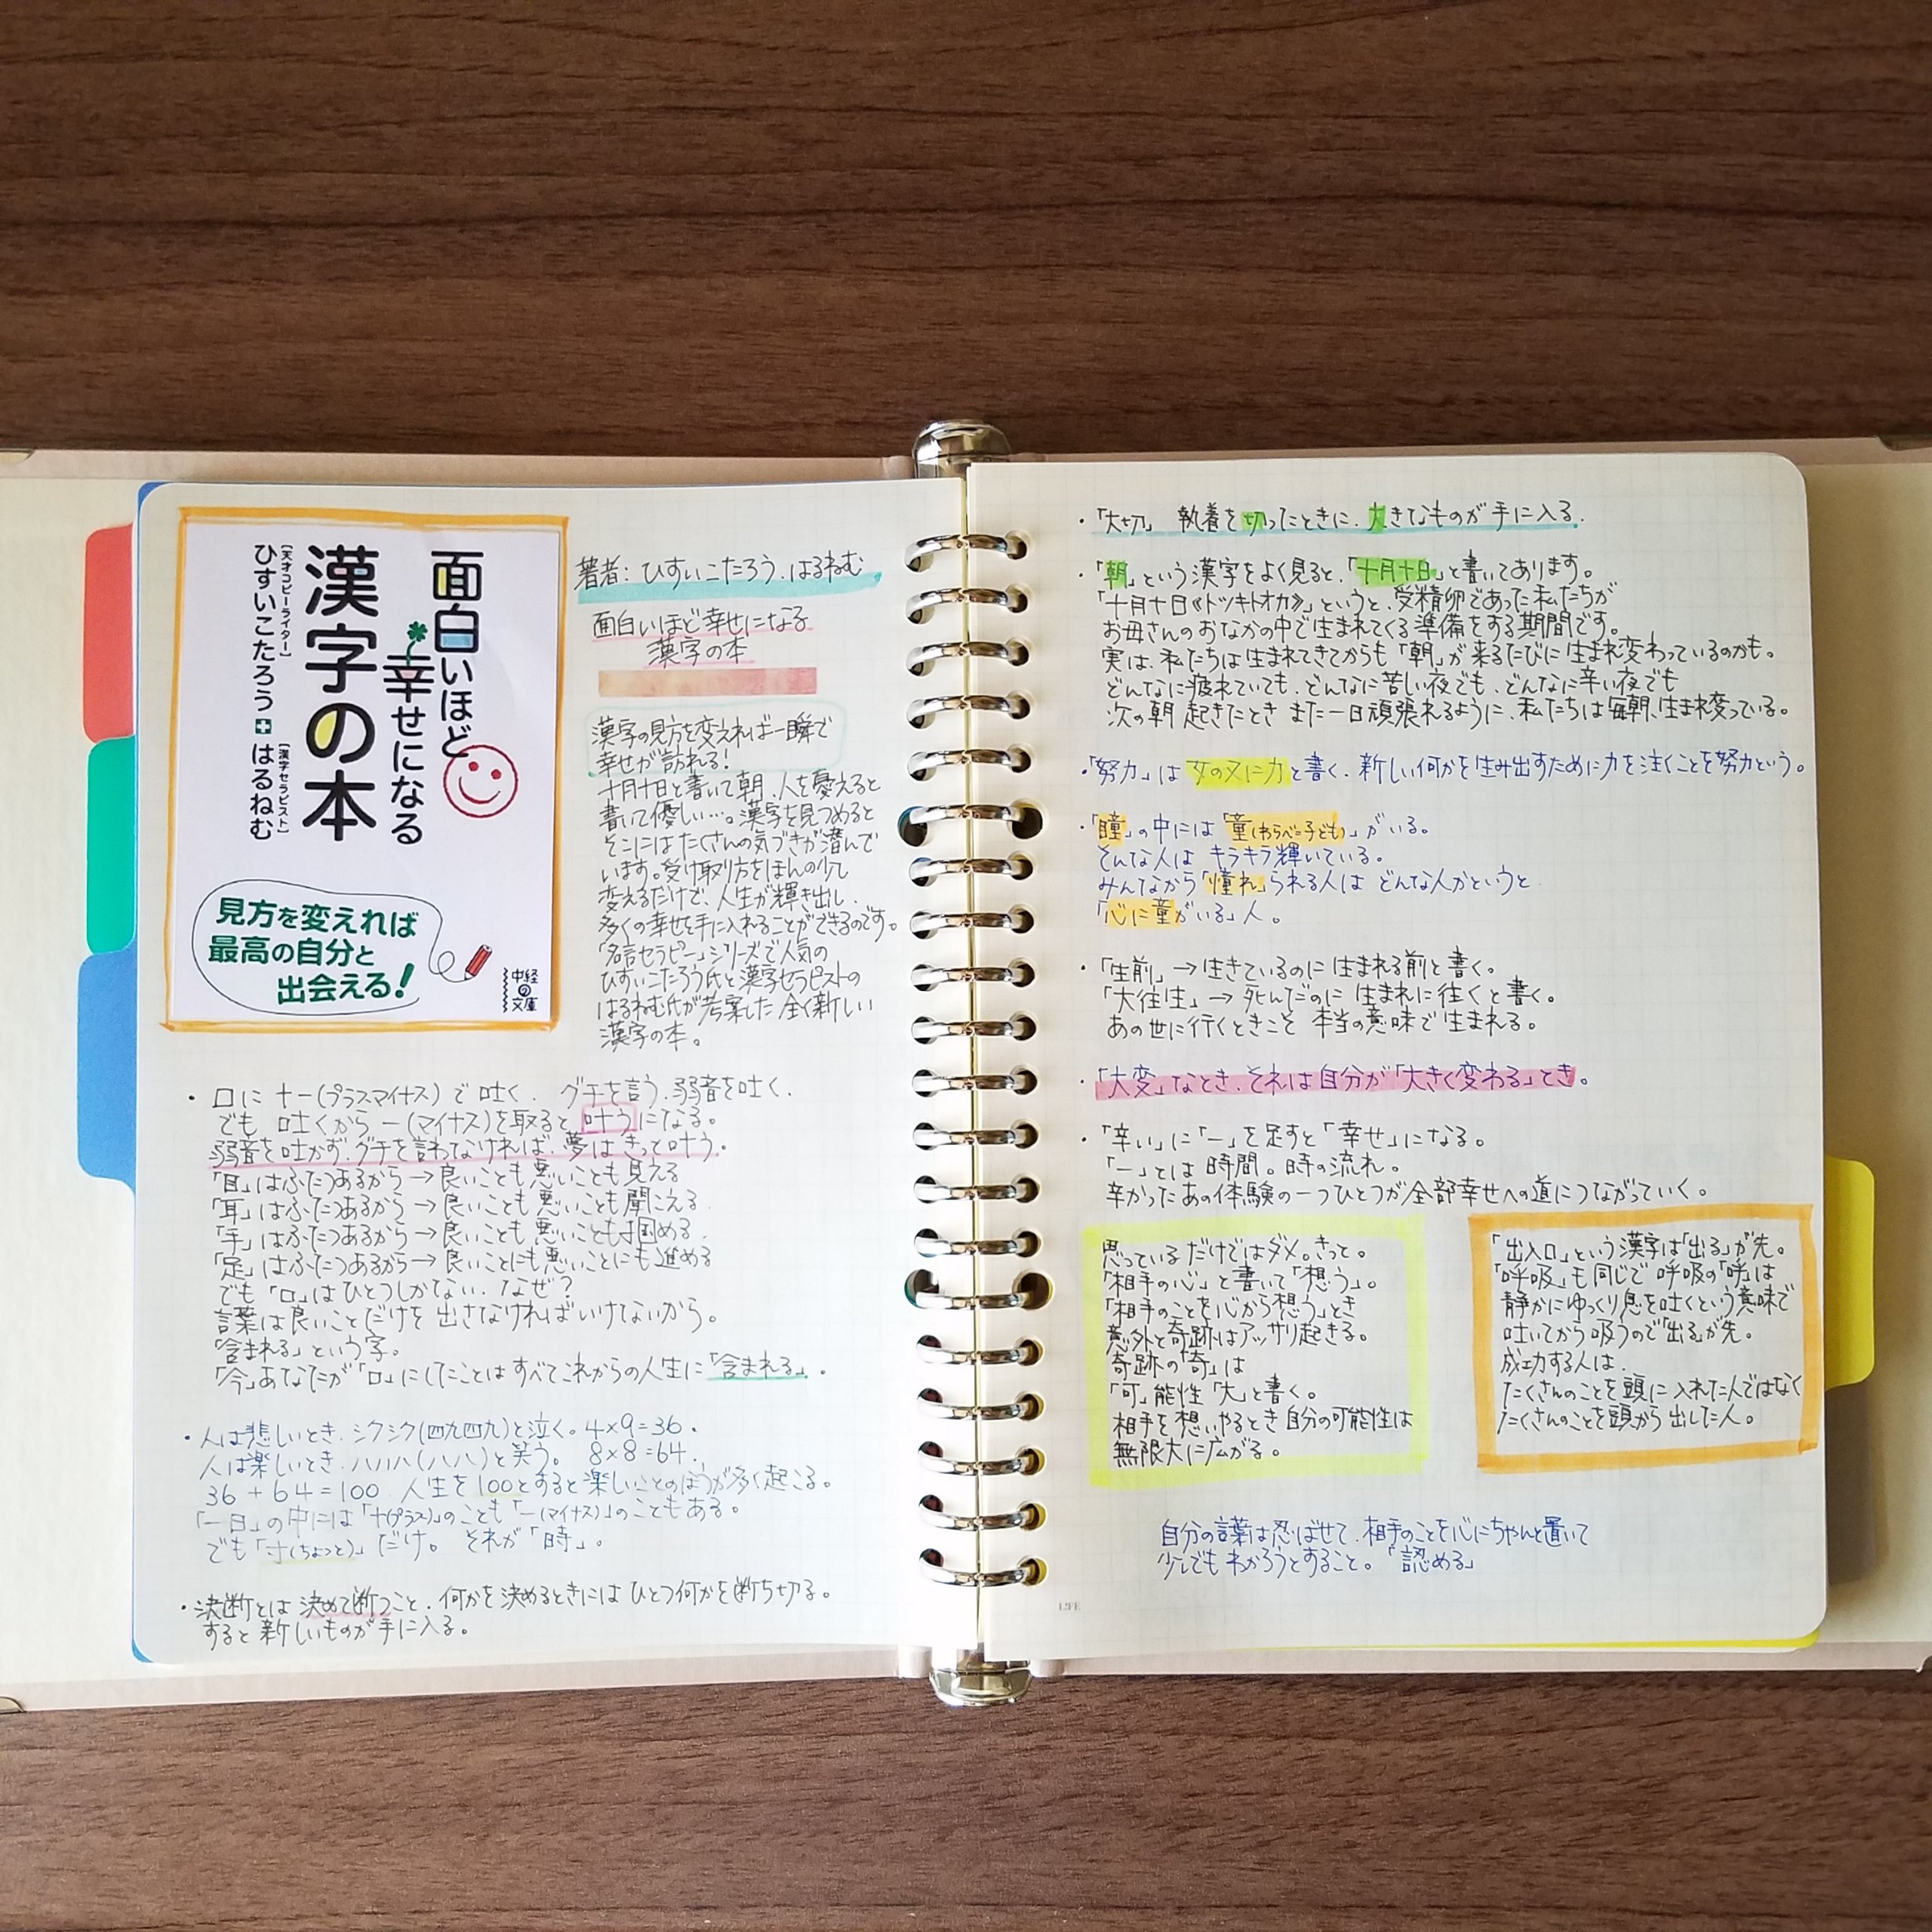 面白いほど
幸せになる
漢字の本
[天才コピーライター]
ひすいこたろう
[漢字セラピスト]
はるねむ
見方を変えれば
最高の自分と
出会える!
中経の文庫
著者:ひすいこたろう、はるねむ
面白いほど幸せになる
漢字の本
漢字の見方を変えれば一瞬で
幸せが訪れる!
十月十日と書いて朝、人を憂えると
書いて優しい…。漢字を見つめると
そこにはたくさんの気づきが潜んで
います。受け取り方をほんの少し
変えるだけで、人生が輝き出し、
多くの幸せを手に入れることができるのです。
「名言セラピー」シリーズで人気の
ひすいこたろう氏と漢字セラピストの
はるねむ氏が考案した全く新しい
漢字の本。
・口に+−(プラスマイナス)で吐く、グチを言う、弱音を吐く、
でも吐くから−(マイナス)を取ると叶うになる。
弱音を吐かず、グチを言わなければ、夢はきっと叶う。
「目」はふたつあるから→良いことも悪いことも見える
「耳」はふたつあるから→良いことも悪いことも聞こえる
「手」はふたつあるから→良いことも悪いことも掴める
「足」はふたつあるから→良いことにも悪いことにも進める
でも「口」はひとつしかない、なぜ?
言葉は良いことだけを出さなければいけないから。
「含まれる」という字。
「今」あなたが「口」にしたことはすべてこれからの人生に「含まれる」。
・人は悲しいとき、シクシク(四九四九)と泣く。4×9=36.
人は楽しいとき、ハハハ(八八)と笑う。8×8=64.
36+64=100 人生を100とすると楽しいことのほうが多く起こる。
「一日」の中には「+(プラス)」のことも「−(マイナス)」のこともある。
でも「寸(ちょっと)」だけ。それが「時」。
・決断とは決めて断つこと、何かを決めるときにはひとつ何かを断ち切る。
すると新しいものが手に入る。
・「大切」 執着を切ったときに、大きなものが手に入る。
・「朝」という漢字をよく見ると、「十月十日」と書いてあります。
「十月十日《トツキトオカ》」というと、受精卵であった私たちが
お母さんのおなかの中で生まれてくる準備をする期間です。
実は、私たちは生まれてきてからも「朝」が来るたびに生まれ変わっているのかも。
どんなに疲れていても、どんなに苦しい夜でも、どんなに辛い夜でも
次の朝起きたときまた一日頑張れるように、私たちは毎朝、生まれ変っている。
・「努力」は女の又に力と書く、新しい何かを生み出すために力を注ぐことを努力という。
・「瞳」の中には「童(わらべ=子ども)」がいる。
そんな人はキラキラ輝いている。
みんなから「憧れ」られる人はどんな人かというと
「心に童がいる」人。
・「生前」→生きているのに生まれる前と書く。
「大往生」→死んだのに生まれに往くと書く。
あの世に行くときこそ本当の意味で生まれる。
・「大変」なとき、それは自分が「大きく変わる」とき。
・「辛い」に「一」を足すと「幸せ」になる。
「一」とは時間。時の流れ。
辛かったあの体験の一つひとつが全部幸せへの道につながっていく。
思っているだけではダメ。きっと。
「相手の心」と書いて「想う」。
「相手のことを心から想う」とき
意外と奇跡はアッサリ起きる。
奇跡の「奇」は
「可」能性「大」と書く。
相手を想いやるとき自分の可能性は
無限大に広がる。
「出入口」という漢字は「出る」が先。
「呼吸」も同じで呼吸の「呼」は
静かにゆっくり息を吐くという意味で
吐いてから吸うので「出る」が先。
成功する人は、
たくさんのことを頭に入れた人ではなく
たくさんのことを頭から出した人。
自分の言葉は忍ばせて、相手のことを心にちゃんと置いて
少しでもわかろうとすること。「認める」
LIFE